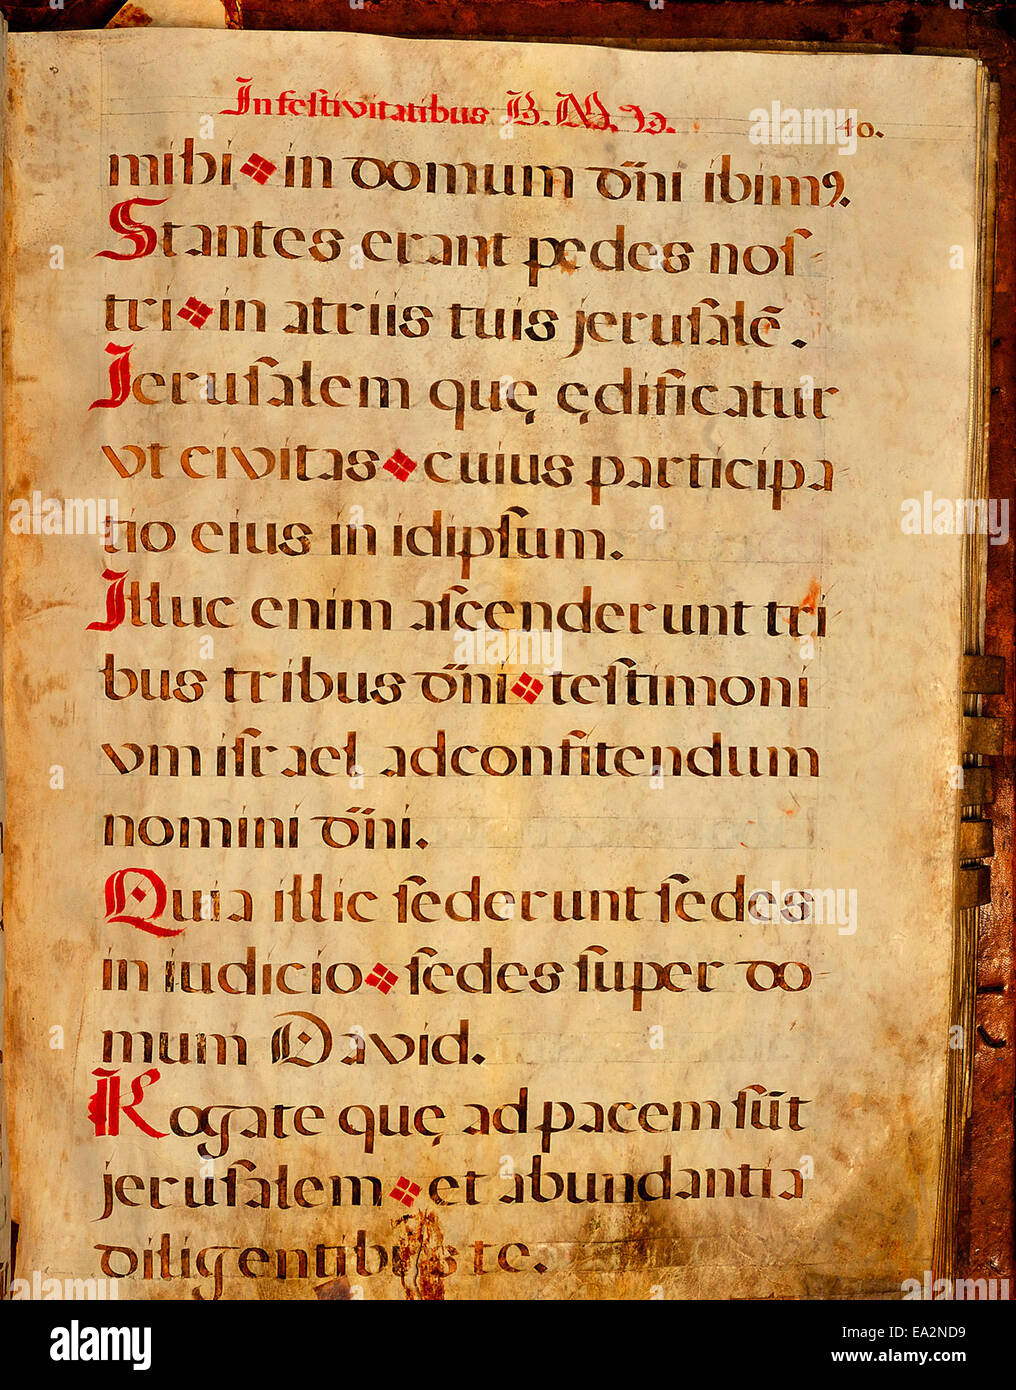 In festivitatibus B. M. V. 40.
mihi in domum dñi ibimꝰ.
Stantes erant pedes nos-
tri in atriis tuis jerusalẽ.
Jerusalem quę ędificatur
vt civitas cuius participa
tio eius in idipsum.
Illuc enim ascenderunt tri
bus tribus dñi testimoni
vm israel adconfitendum
nomini dñi.
Quia illic sederunt sedes
in iudicio sedes super do-
mum David.
Rogate quę ad pacem sũt
jerusalem et abundantia
diligentibus te.
alamy
alamy
Image ID: EA2ND9
www.alamy.com